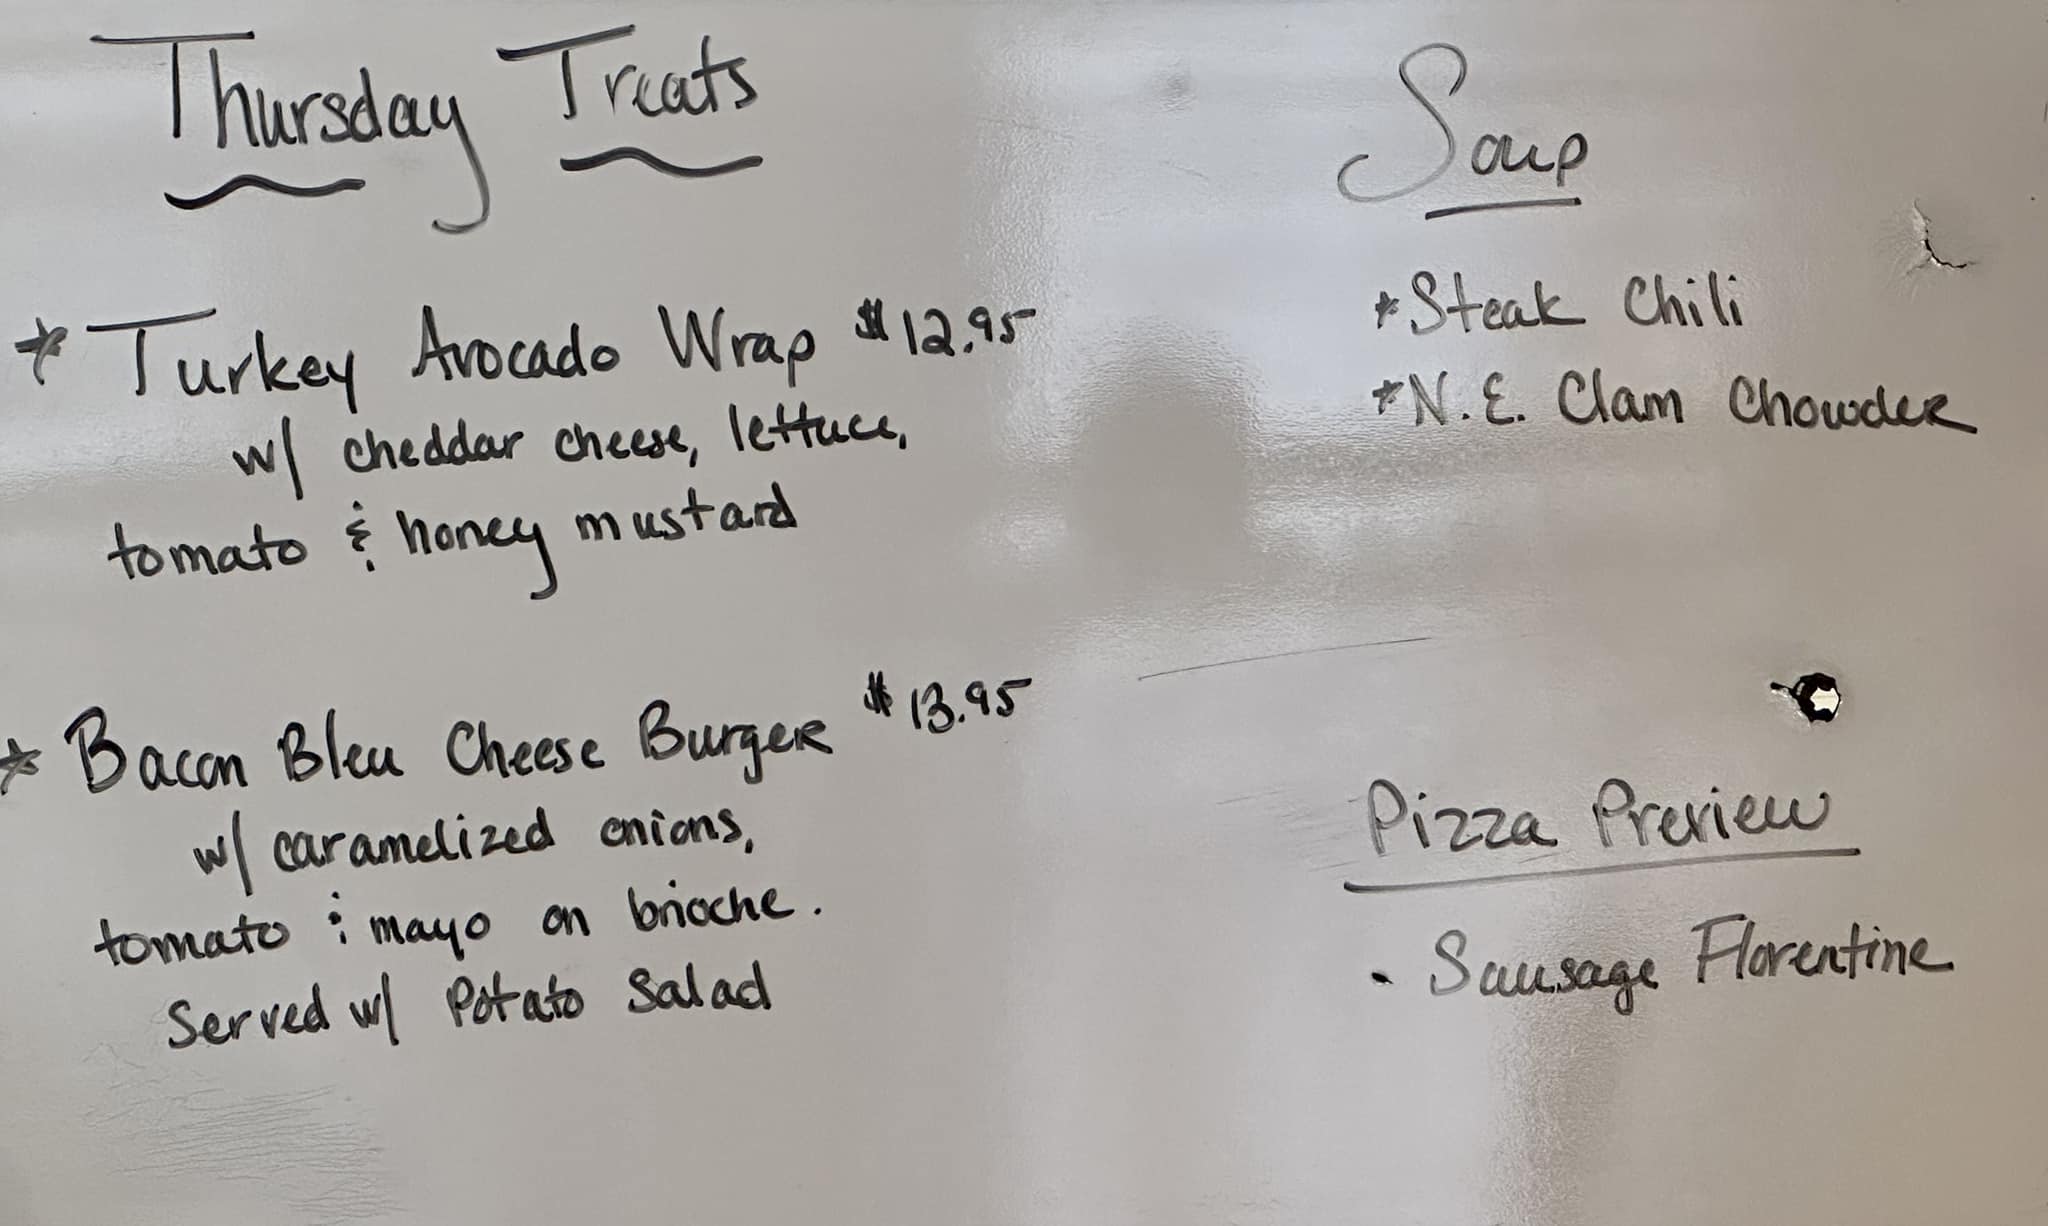 Thursday Treats
* Turkey Avocado Wrap $12.95
w/ cheddar cheese, lettuce,
tomato & honey mustard
* Bacon Bleu Cheese Burger $13.95
w/ caramelized onions,
tomato & mayo on brioche.
Served w/ Potato Salad
Soup
*Steak Chili
*N.E. Clam Chowder
Pizza Preview
• Sausage Florentine